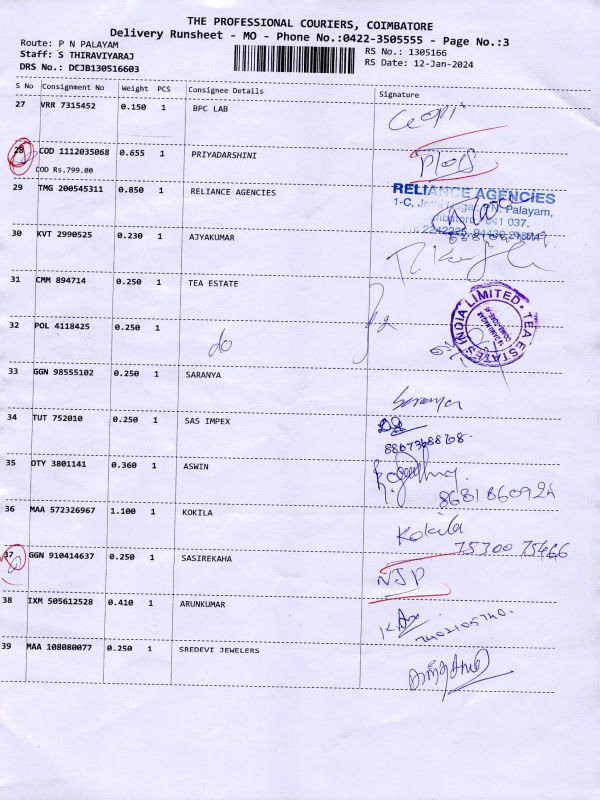 THE PROFESSIONAL COURIERS, COIMBATORE
Delivery Runsheet - MO - Phone No.:0422-3505555 - Page No.:3
Route: P N PALAYAM
RS No.: 1305166
Staff: S THIRAVIYARAJ
RS Date: 12-Jan-2024
DRS No.: DCJB130516603
S No Consignment No Weight PCS Consignee Details Signature
27 VRR 7315452 0.150 1 BPC LAB Gopi
28 COD 1112035068 0.655 1 PRIYADARSHINI
COD Rs.799.00
29 TMG 200545311 0.850 1 RELIANCE AGENCIES
RELIANCE AGENCIES
30 KVT 2990525 0.230 1 AJYAKUMAR
31 CMM 894714 0.250 1 TEA ESTATE
TEA ESTATES INDIA LIMITED
32 POL 4118425 0.250 1 do
33 GGN 98555102 0.250 1 SARANYA Saranya
34 TUT 752010 0.250 1 SAS IMPEX
35 OTY 3801141 0.360 1 ASWIN
36 MAA 572326967 1.100 1 KOKILA Kokila
75300 75466
37 GGN 910414637 0.250 1 SASIREKAHA NSP
38 IXM 505612528 0.410 1 ARUNKUMAR
39 MAA 108080077 0.250 1 SREDEVI JEWELERS